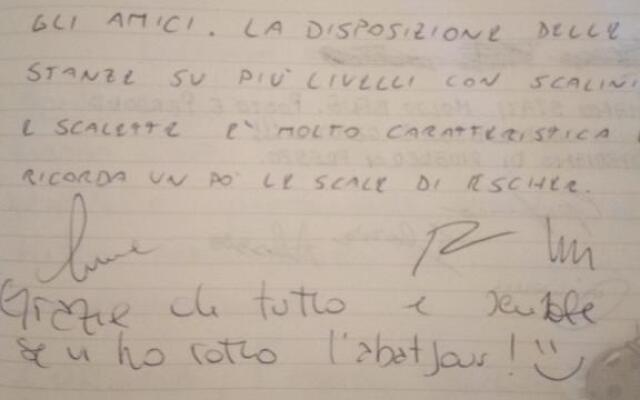 GLI AMICI. LA DISPOSIZIONE DELLE
STANZE SU PIU' LIVELLI CON SCALINI
E SCALETTE E' MOLTO CARATTERISTICA
RICORDA UN PO' LE SCALE DI ESCHER.
Grazie di tutto e scusate
se vi ho rotto l'abatjour! :)